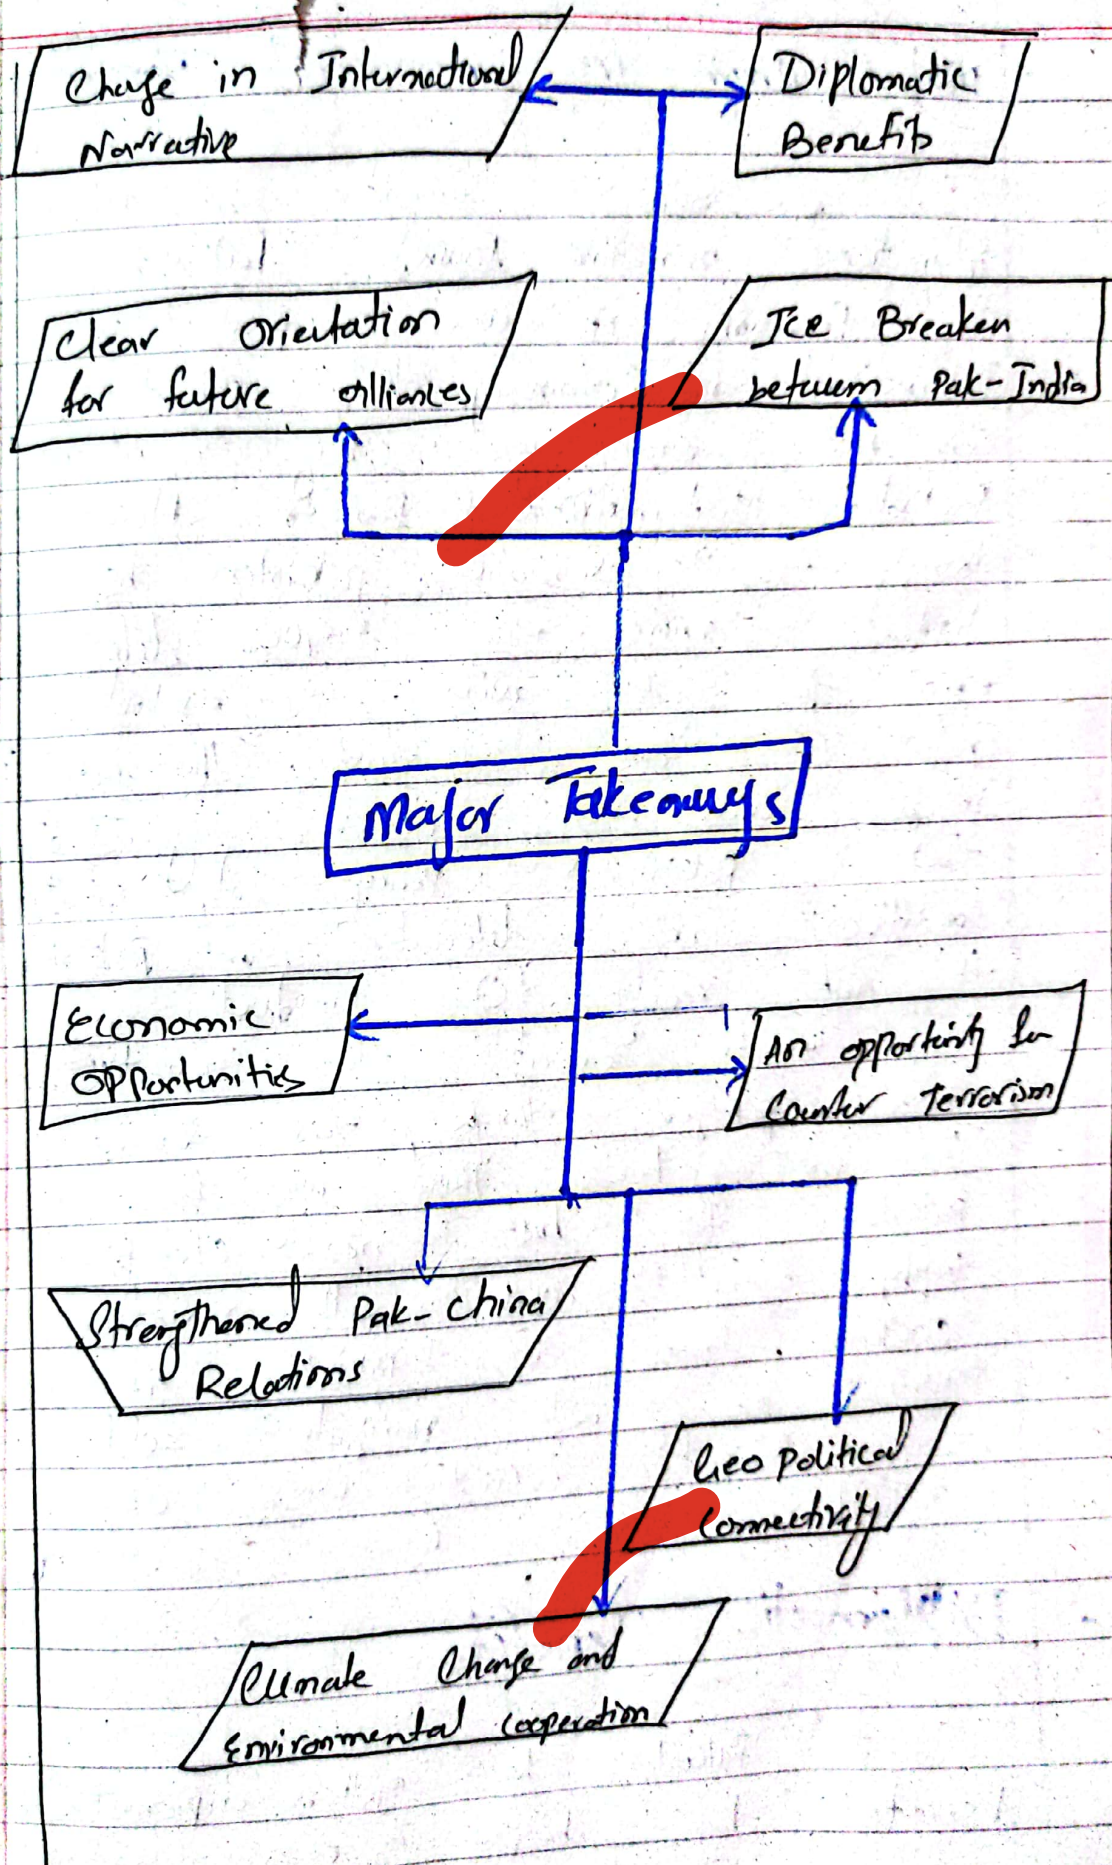 Change in International
Narrative
Diplomatic
Benefits
Clear Orientation
for future alliances
Ice Breaker
between Pak-India
Major Takeaways
Economic
Opportunities
An opportunity for
Counter Terrorism
Strengthened Pak-China
Relations
Geo Political
Connectivity
Climate Change and
Environmental cooperation